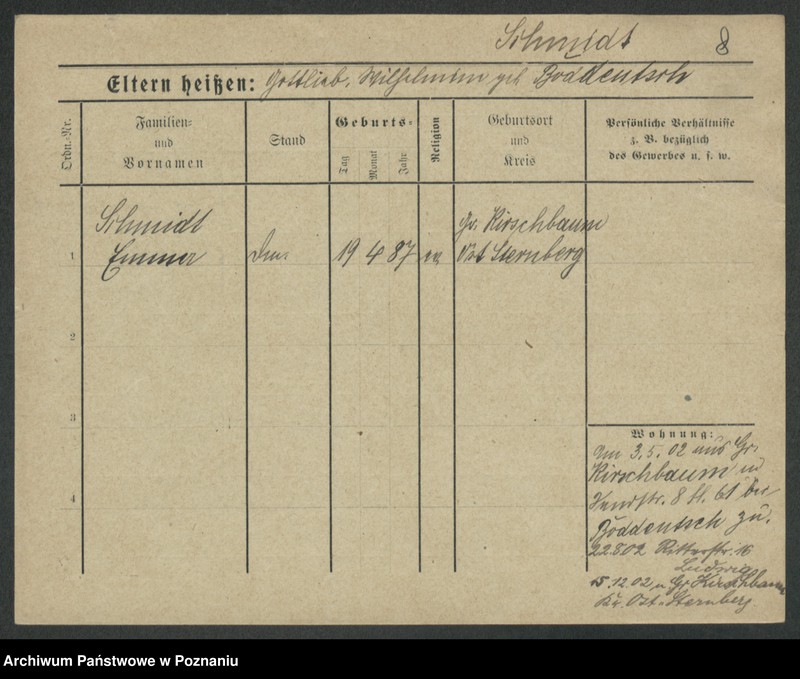 Schmidt 8
Eltern heißen: Gottlieb, Wilhelmine geb Böddeutsch
Ordn.-Nr.
Familien-
und
Vornamen
Stand
Geburts-
Tag
Monat
Jahr
Religion
Geburtsort
und
Kreis
Persönliche Verhältnisse
z. B. bezüglich
des Gewerbes u. s. w.
Schmidt
1 Emma 19 4 87 ev
Gr. Kirschbaum
Ost Sternberg
2
3
4
Wohnung:
Am 3.5.02 aus Gr.
Kirschbaum
8 bei
Böddeutsch zu.
22802 Ritterstr. 16
Ludwig
15.12.02 n Gr Kirschbaum
Kr. Ost-Sternberg.
Archiwum Państwowe w Poznaniu